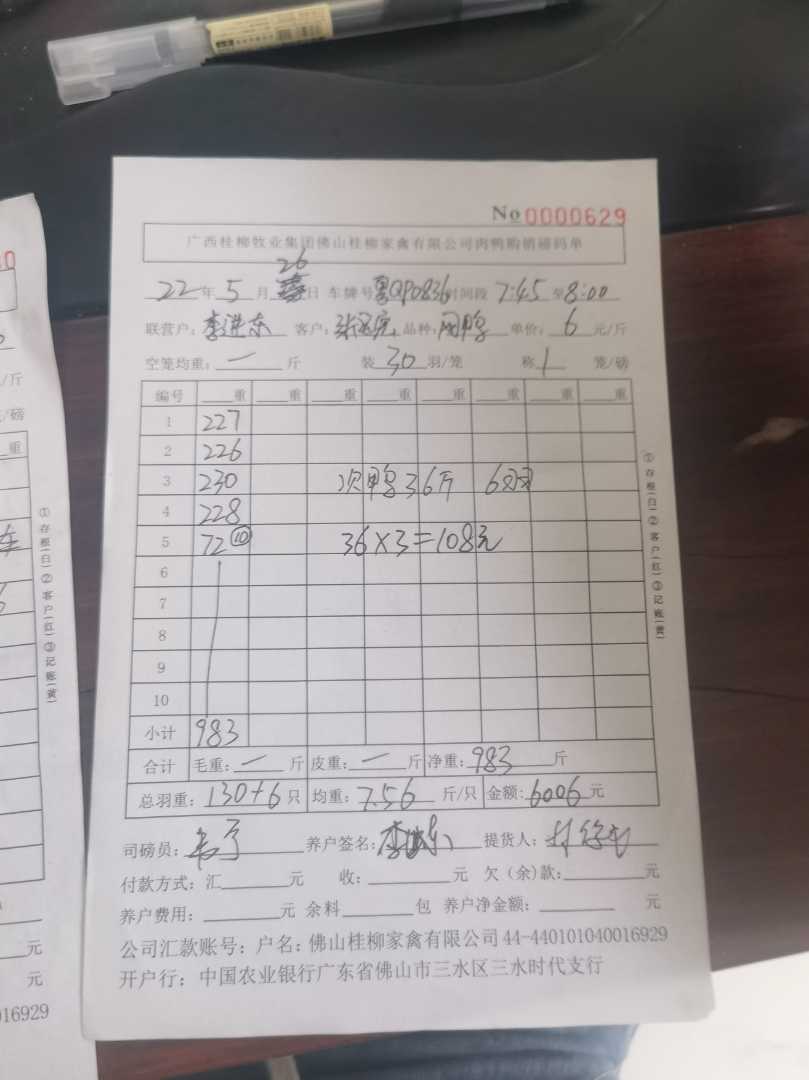 No 0000629
广西桂柳牧业集团佛山桂柳家禽有限公司肉鸭购销磅码单
26
22年5月日 车牌号粤QP0836时间段7:45至8:00
联营户:李进东 客户: 品种: 单价:6元/斤
空笼均重:一斤 装30羽/笼 称1笼/磅
编号 重 重 重 重 重 重 重 重
1 227
2 226
3 230 次鸭36斤 6羽
4 228
5 72⑩ 36×3=108元
6
7
8
9
10
小计 983
合计 毛重:一斤 皮重:一斤 净重:983斤
总羽重:130+6只 均重:7.56斤/只 金额:6006元
司磅员: 养户签名: 提货人:
付款方式:汇 元 收: 元 欠(余)款: 元
养户费用: 元 余料 包 养户净金额: 元
公司汇款账号:户名:佛山桂柳家禽有限公司44-440101040016929
开户行:中国农业银行广东省佛山市三水区三水时代支行
①存根(白)②客户(红)③记账(黄)
/斤
/磅
重
①存根(白)②客户(红)③记账(黄)
元
元
016929